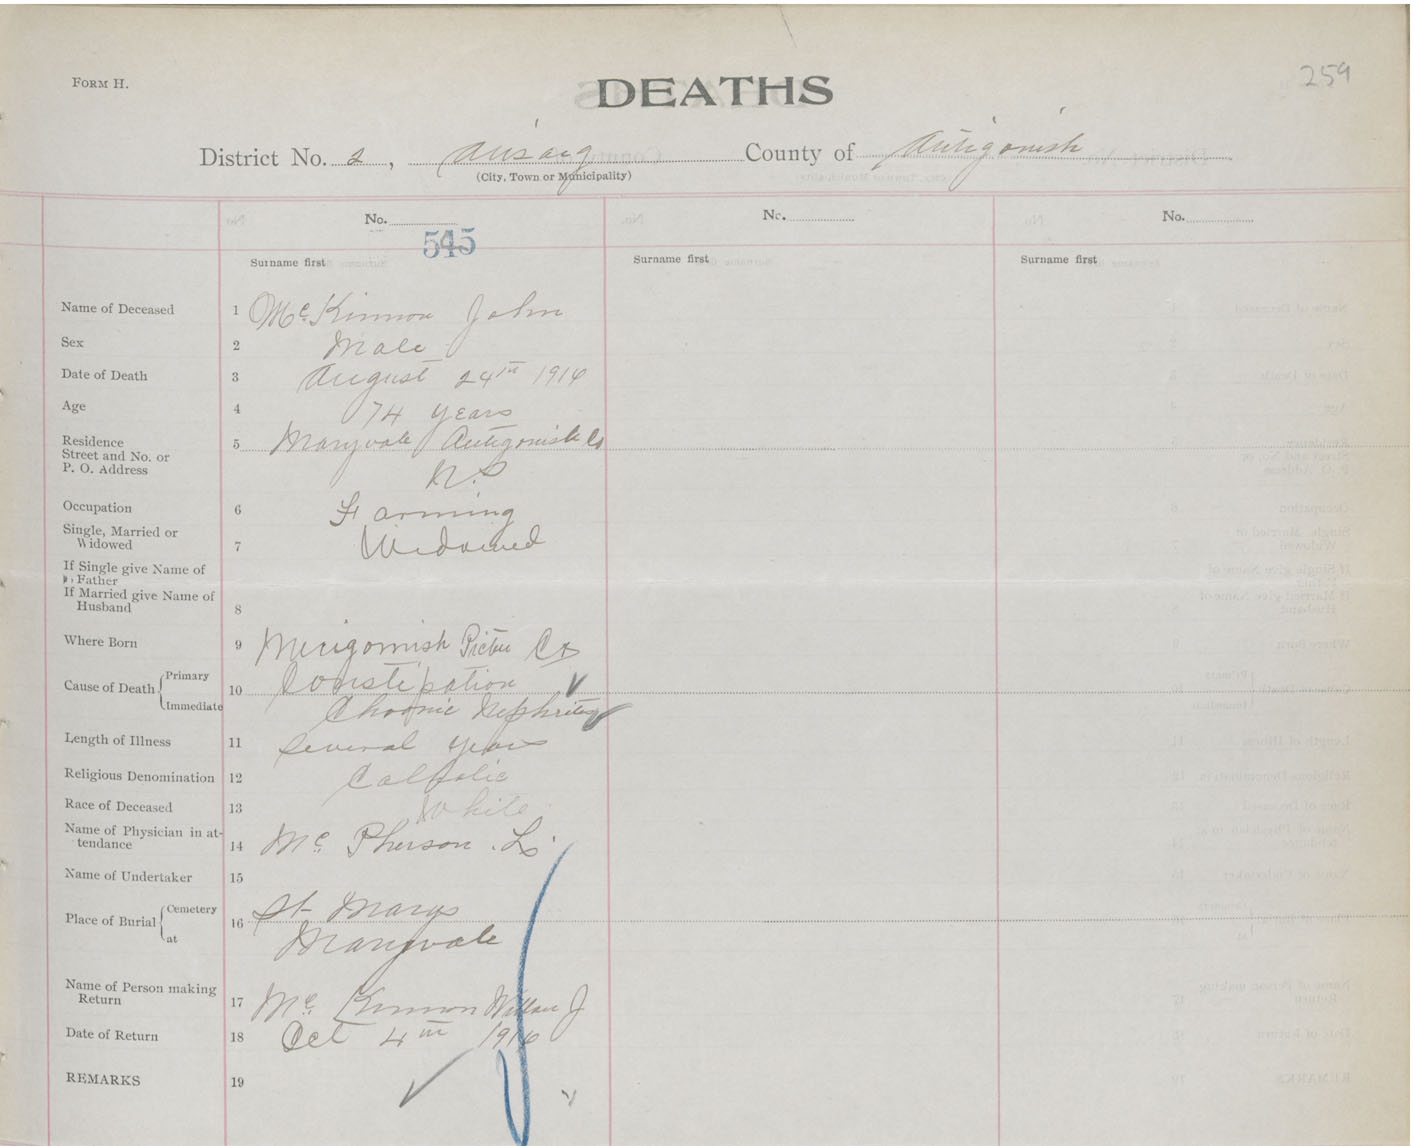 FORM H.
DEATHS
259
District No. 2, Arisaig County of Antigonish
(City, Town or Municipality)
No. No. No.
545
Surname first Surname first Surname first
Name of Deceased 1 McKinnon John
Sex 2 Male
Date of Death 3 August 24th 1916
Age 4 74 years
Residence 5 Maryvale Antigonish Co
Street and No. or
P. O. Address N.S
Occupation 6 Farming
Single, Married or
Widowed 7 Widowed
If Single give Name of
Father
If Married give Name of
Husband 8
Where Born 9 Merigomish Pictou Co
Cause of Death Primary 10 Constipation
Immediate Chronic Nephritis
Length of Illness 11 Several years
Religious Denomination 12 Catholic
Race of Deceased 13 White
Name of Physician in at-
tendance 14 Mc Pherson
Name of Undertaker 15
Place of Burial Cemetery 16 St Marys
at Maryvale
Name of Person making
Return 17 Mc Kinnon J
Date of Return 18 Oct 4th 1916
REMARKS 19